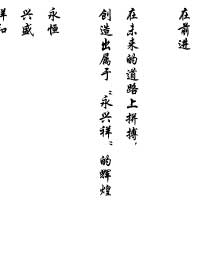 在前进
在未来的道路上拼搏，
创造出属于“永兴祥”的辉煌
永恒
兴盛
祥和